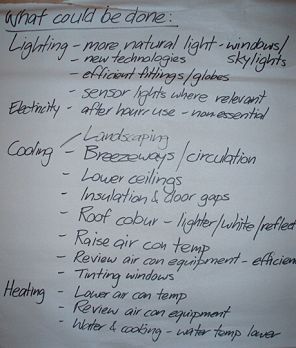 What could be done:
Lighting - more natural light - windows/
skylights
- new technologies
- efficient fittings/globes
- sensor lights where relevant
Electricity - after hour use - non essential
Landscaping
Cooling - Breezeways/circulation
- Lower ceilings
- Insulation & door gaps
- Roof colour - lighter/white/reflect
- Raise air con temp
- Review air con equipment - efficien
- Tinting windows
Heating - Lower air con temp
- Review air con equipment
- Water & cooking - water temp lower